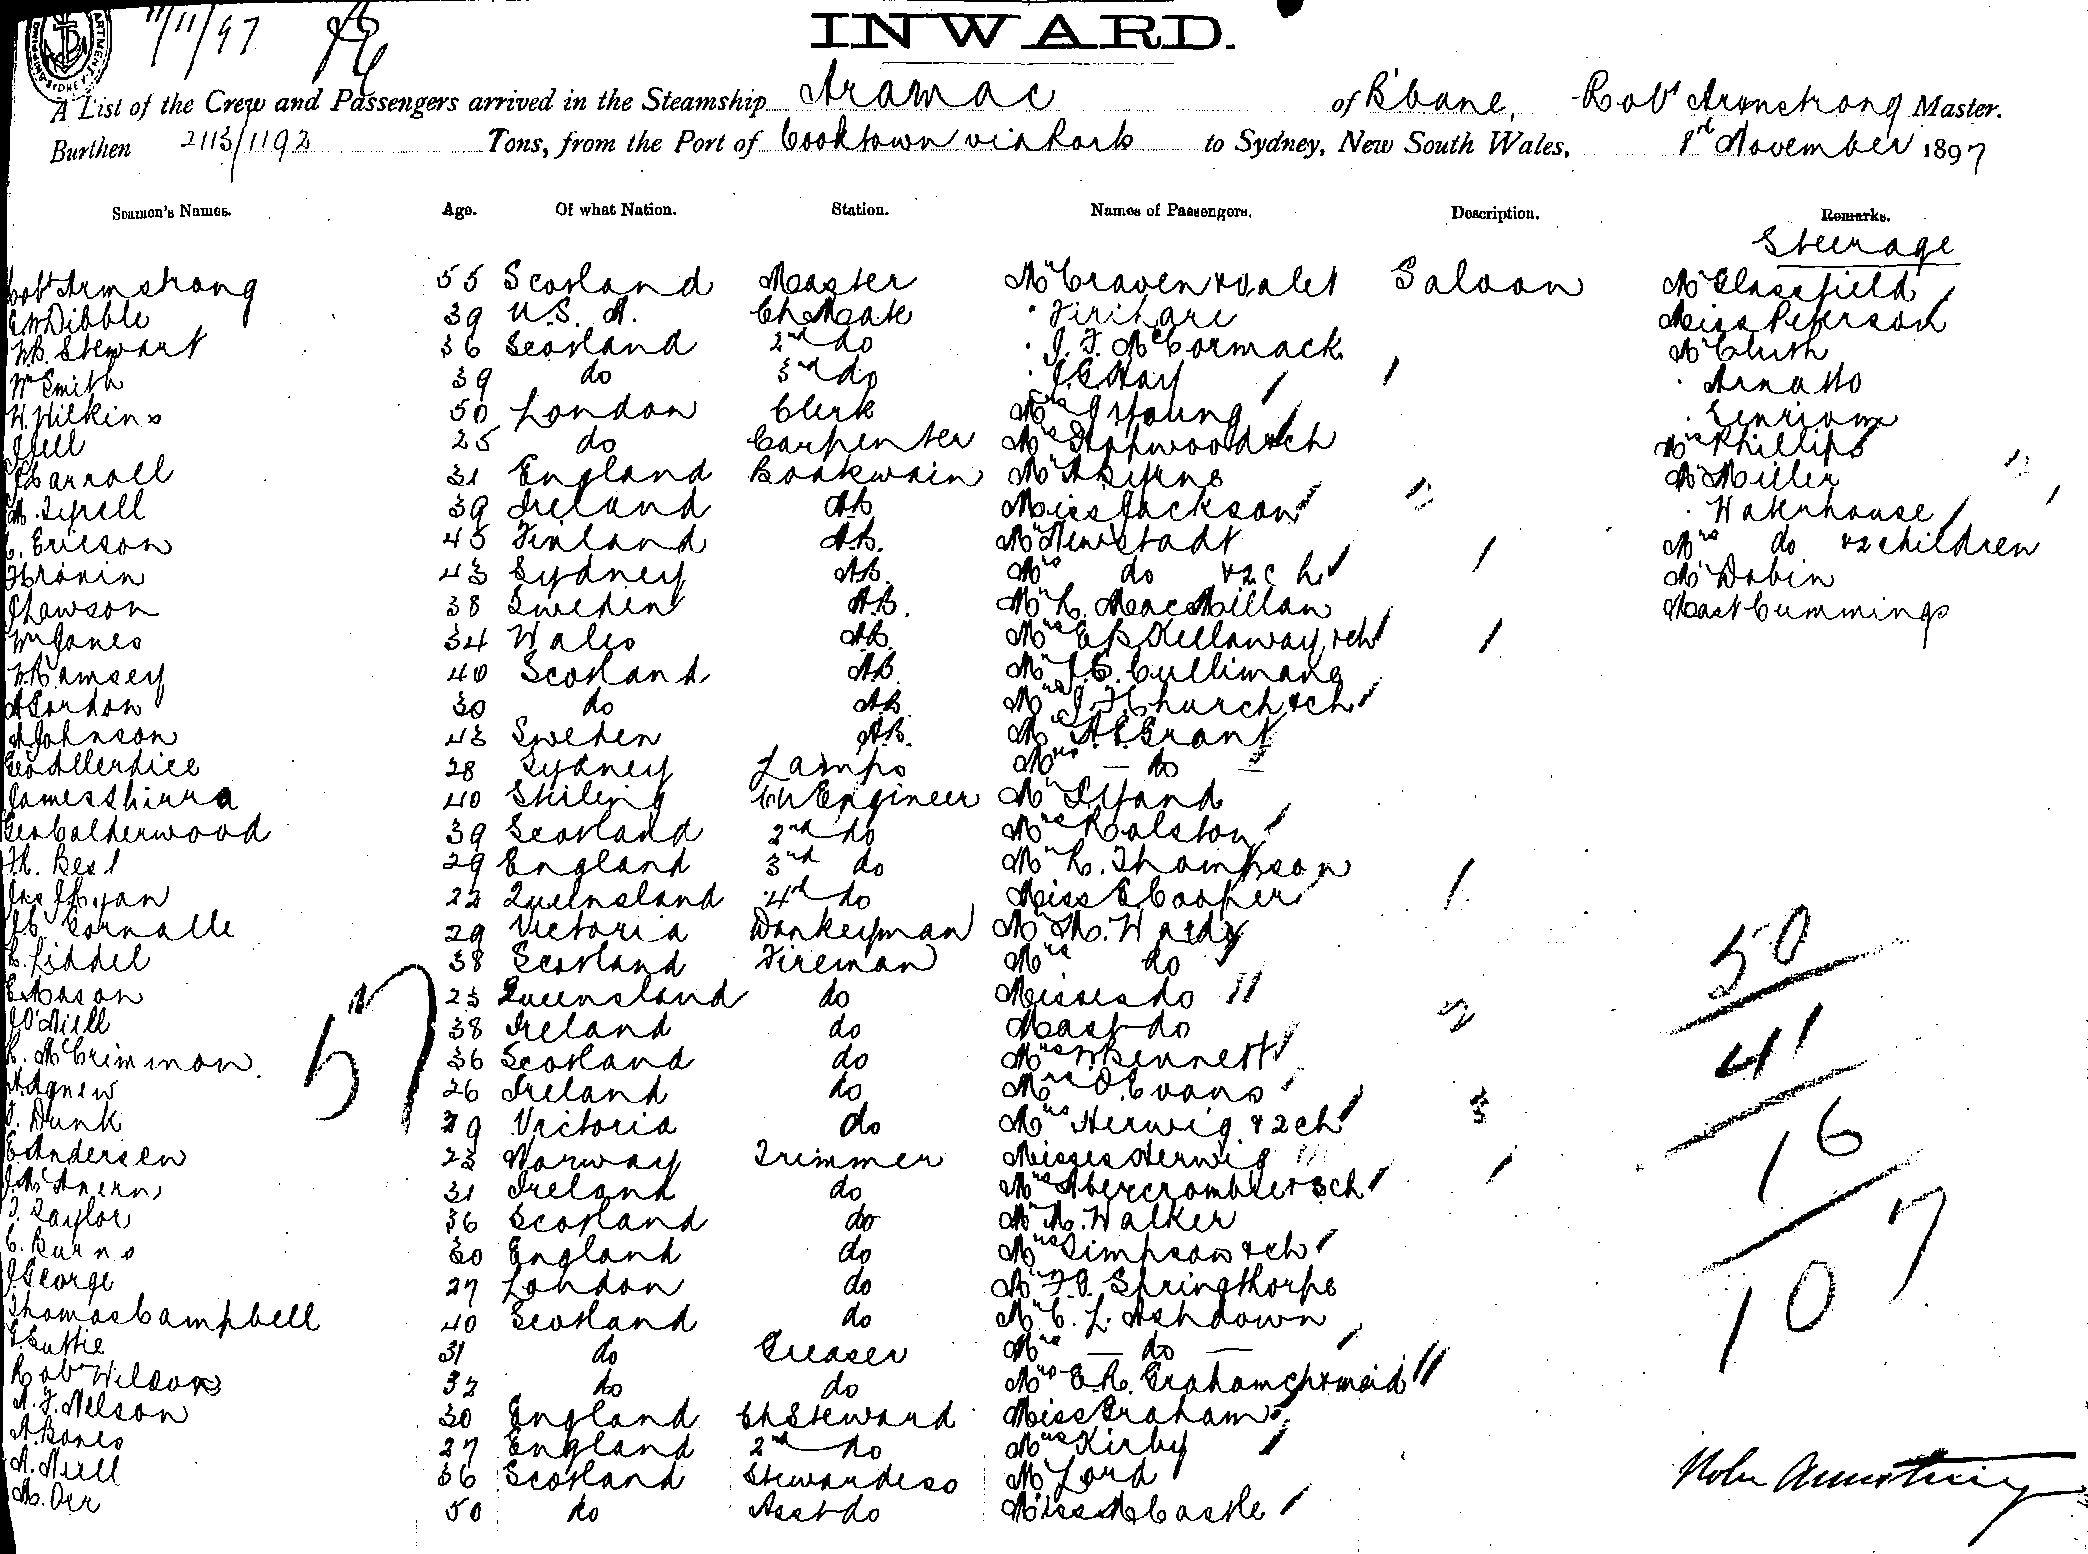 11/11/97
INWARD.
A List of the Crew and Passengers arrived in the Steamship Aramac of B'bane, Robt Armstrong Master.
Burthen 2113/1192 Tons, from the Port of Cooktown via Ports to Sydney, New South Wales, November 1897
Seamen's Names. Age. Of what Nation. Station. Names of Passengers. Description. Remarks.
Steerage
Robt Armstrong 55 Scotland Master Mr Craven & valet Saloon Mr Glassfield
Dibble 39 U.S. A. Ch Mate Miss Peterson
Stewart 36 Scotland 2nd do J. F. McCormack Mr
Wm Smith 39 do 3rd do J. C. Hay
H. Wilkins 50 London Clerk Mrs Young
25 do Carpenter Mrs Hopwood & ch Mrs Phillips
Carroll 31 England Boatswain Mr A Byrne Mr Miller
Tyrell 39 Ireland AB Miss Jackson Waterhouse
Ericson 45 Finland A.B. Mr Newstadt Mrs do & 2 children
Cronin 43 Sydney AB. Mrs do & 2 ch Mr Dobin
Lawson 38 Sweden A.B. Mr MacMillan Mast Cummings
Wm Jones 34 Wales AB. Mrs Kellaway & ch
Ramsey 40 Scotland AB. Mr J. C. Cullimane
A Gordon 30 do AB. Mrs J. Church & ch
A Johnson 43 Sweden AB. Mr A. E. Grant
Geo Allerdice 28 Sydney Lamps Mrs — do —
James Shirra 40 Stirling Ch Engineer Mr
Geo Calderwood 39 Scotland 2nd do Mrs Ralston
H. Best 29 England 3rd do Mr Thompson
Jas Ryan 22 Queensland 4th do Miss E Cooper
29 Victoria Donkeyman Mr M. Ward
Liddel 38 Scotland Fireman Mrs do
Mason 23 Queensland do Misses do
O'Niell 38 Ireland do Mast do
McCrimmon. 36 Scotland do Mrs Bennett
Agnew 26 Ireland do Mrs Evans
Dunk 29 Victoria do Mrs Herwig & 2 ch
Andersen 23 Norway Trimmer Misses Herwig
31 Ireland do Mrs Abercrombie & 3 ch
T. Taylor 36 Scotland do Mr A. Walker
C. Burns 30 England do Mrs Simpson & ch
George 27 London do Mr Springthorpe
Thomas Campbell 40 Scotland do Mr C. L. Ashdown
Suttie 31 do Greaser Mrs — do —
Robt Wilson 32 do do Mrs E. R. Graham ch & maid
A. F. Nelson 30 England Ch Steward Miss Graham
A. Bones 27 England 2nd do Mrs Kirby
A. Niell 36 Scotland Stewardess Mr Lord
M. Orr 50 do Asst do Miss M Castle
57
50
41
16
107
Robt Armstrong